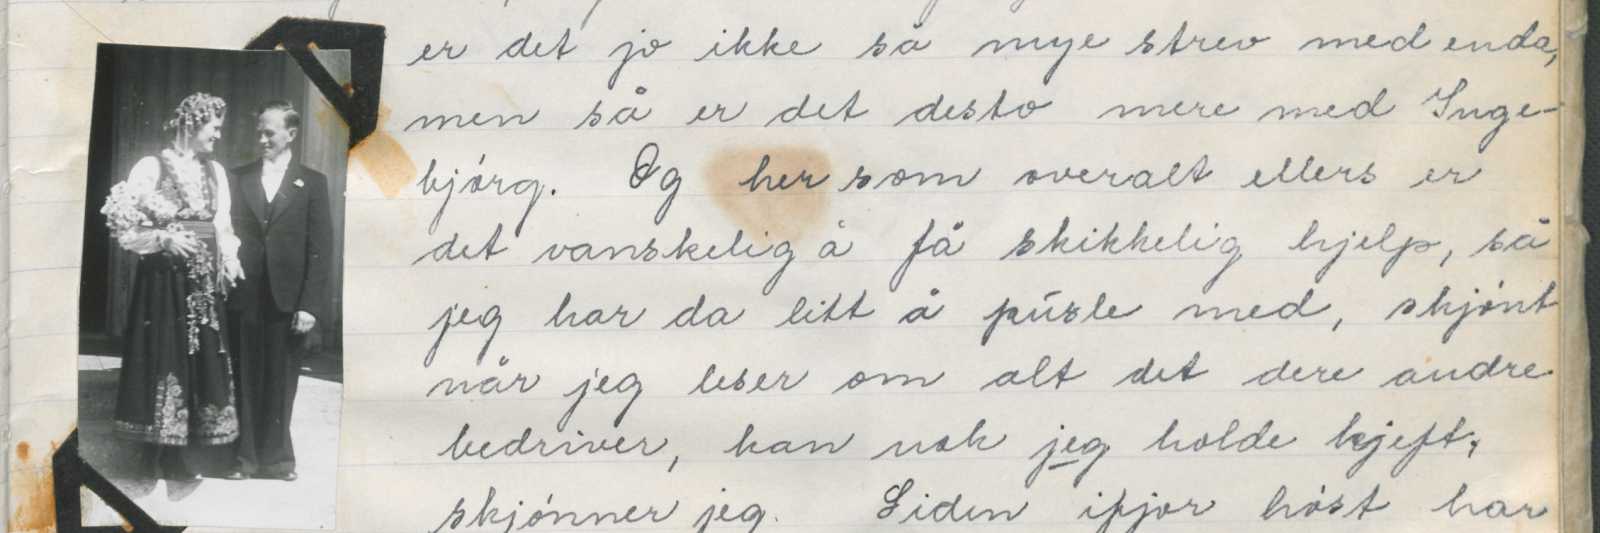 er det jo ikke så mye strev med enda,
men så er det desto mere med Inge-
bjórg. Og her som overalt ellers er
det vanskelig å få skikkelig hjelp, så
jeg har da litt å púsle med, skjónt
når jeg leser om alt det dere andre
bedriver, kan nok jeg holde kjeft,
skjónner jeg. Siden ifjor hóst har